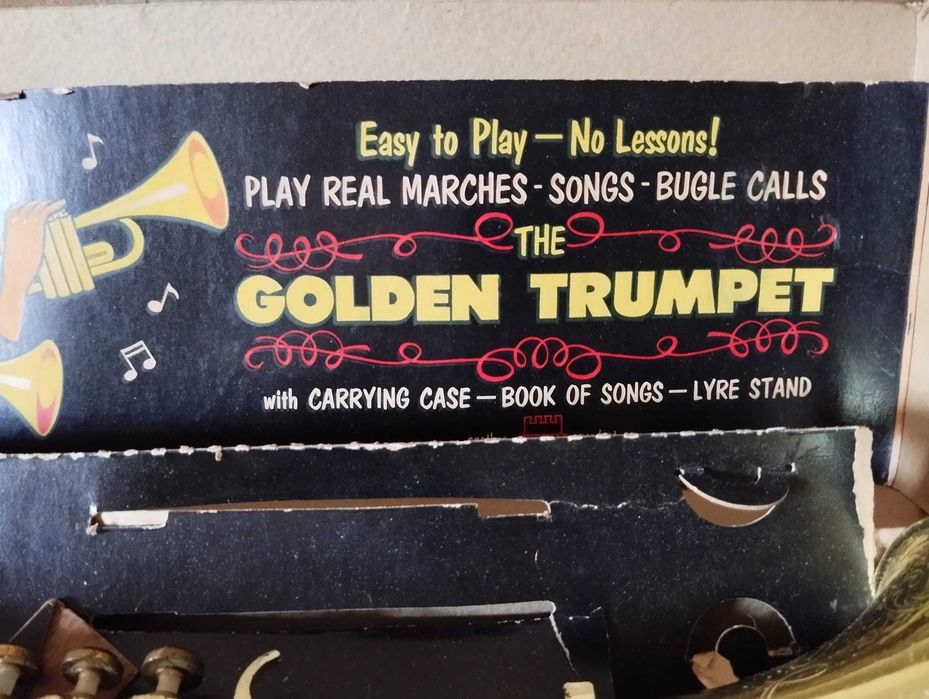 Easy to Play — No Lessons!
PLAY REAL MARCHES - SONGS - BUGLE CALLS
THE
GOLDEN TRUMPET
with CARRYING CASE — BOOK OF SONGS — LYRE STAND